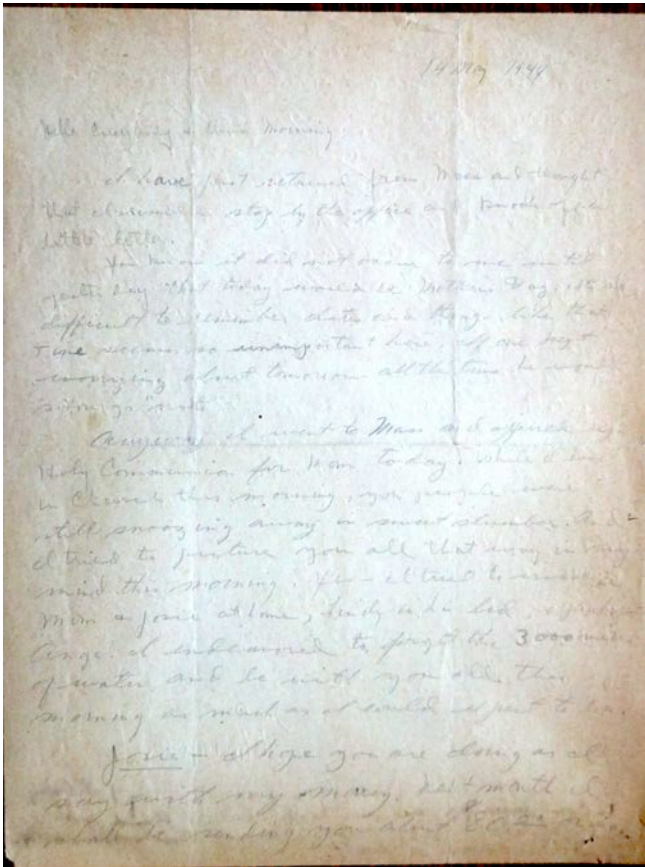 14 May 1944
Hello Everybody Morning
I have just returned from Mass and thought
that I would stop by the office and knock off a
little letter.
You know it did not occur to me until
yesterday that today would be Mother's Day. It's
difficult to remember dates and things like that
Time seems so unimportant here. If one kept
worrying about tomorrow all the time he
Anyway I went to Mass and offered my
Holy Communion for Mom today. While I was
in Church this morning, you people were
still snoozing away in sweet slumber. And
I tried to picture you all that way in my
mind this morning. I tried to
Mom & Josie at home, in his bed,
Ange. I endeavored to forget the 3000 miles
of water and be with you all this
morning as much as I could expect to be.
Josie - I hope you are doing as I
say with my money. Next month I
shall be sending you about